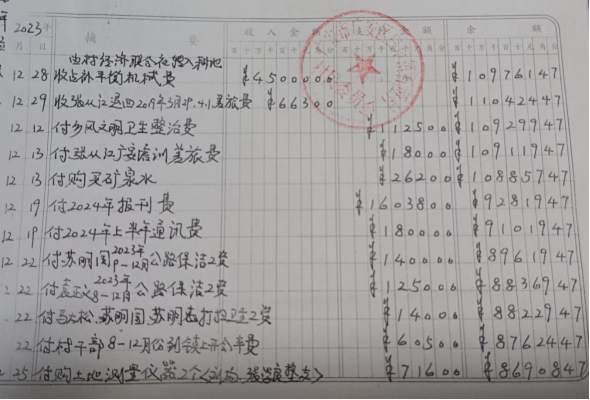 2023年
月 日 摘要 收入金额 支出金额 余额
由村经济联合社转入耕地
12 28 收占补平衡机械费 ¥4500000 ¥10976147
12 29 收张从江退回2019年3月29.4.1差旅费 ¥66300 ¥11042447
12 12 付乡风文明卫生整治费 ¥112500 ¥10929947
12 13 付张从江广安培训差旅费 ¥18000 ¥10911947
12 13 付购买矿泉水 ¥26200 ¥10885747
12 19 付2024年报刊费 ¥1603800 ¥9281947
12 19 付2024年上半年通讯费 ¥180000 ¥9101947
12 22 付苏明国2023年9-12月公路保洁工资 ¥140000 ¥8961947
22 付 2023年8-12月公路保洁工资 ¥125000 ¥8836947
22 付马大松、苏明国、苏明 打扫卫生工资 ¥14000 ¥8822947
22 付村干部8-12月份到镇上开会车费 ¥60500 ¥8762447
25 付购土地测量仪器2个（ 垫支） ¥71600 ¥8690847